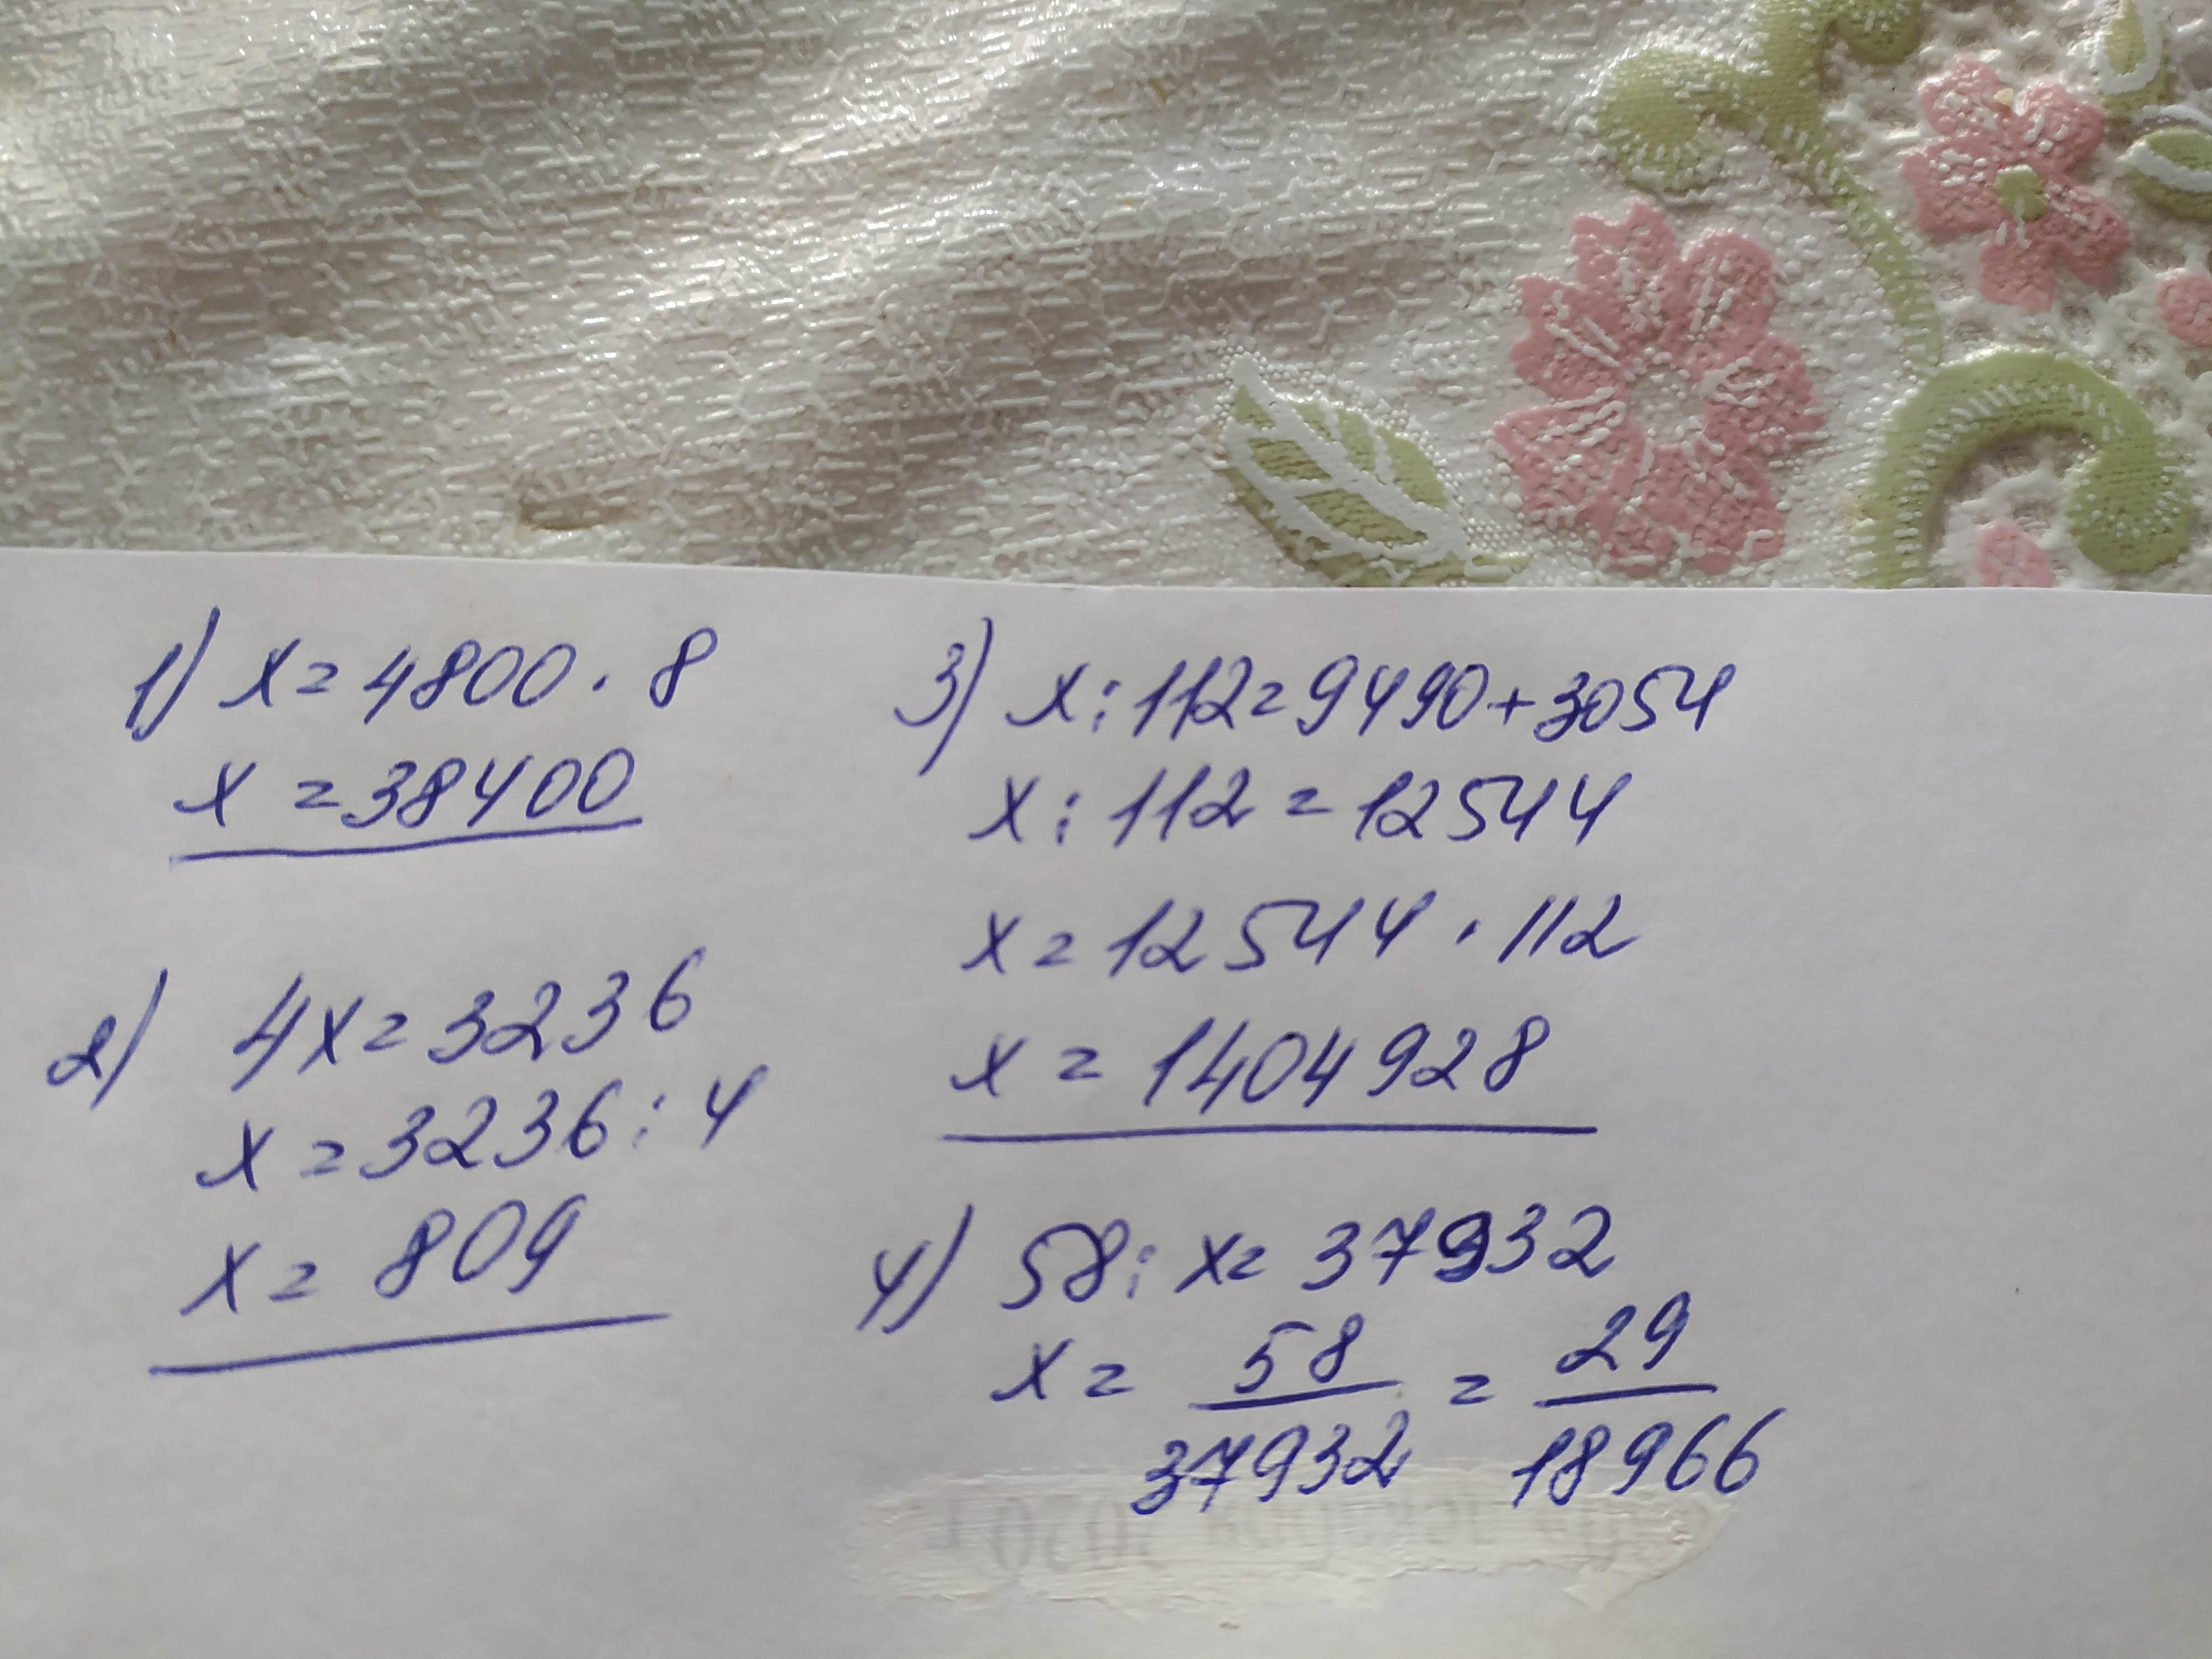 1) x = 4800 · 8
x = 38400
2) 4x = 3236
x = 3236 : 4
x = 809
3) x : 112 = 9490 + 3054
x : 112 = 12544
x = 12544 · 112
x = 1404928
4) 58 : x = 37932
x = 58/37932 = 29/18966